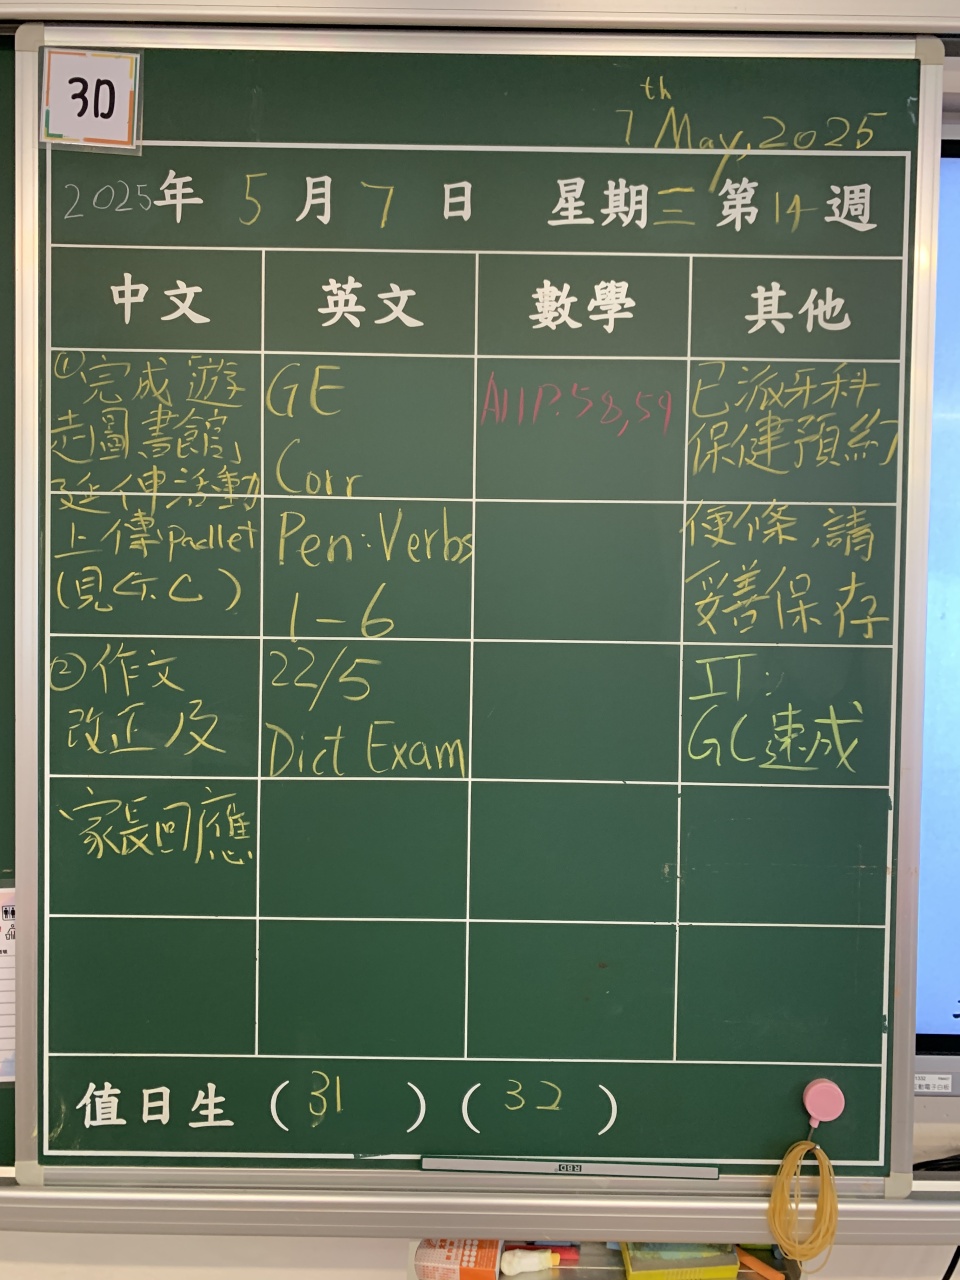 3D
7th May, 2025
2025年 5 月 7 日 星期三 第14週
中文
英文
數學
其他
①完成「遊
走圖書館」
延伸活動
上傳padlet
(見G.C)
②作文
改正及
家長回應
GE
Corr
Pen: Verbs
1-6
22/5
Dict Exam
A11 P.58,59
已派牙科
保健預約
便條,請
妥善保存
IT:
GC速成
值日生 ( 31 ) ( 32 )
RBD